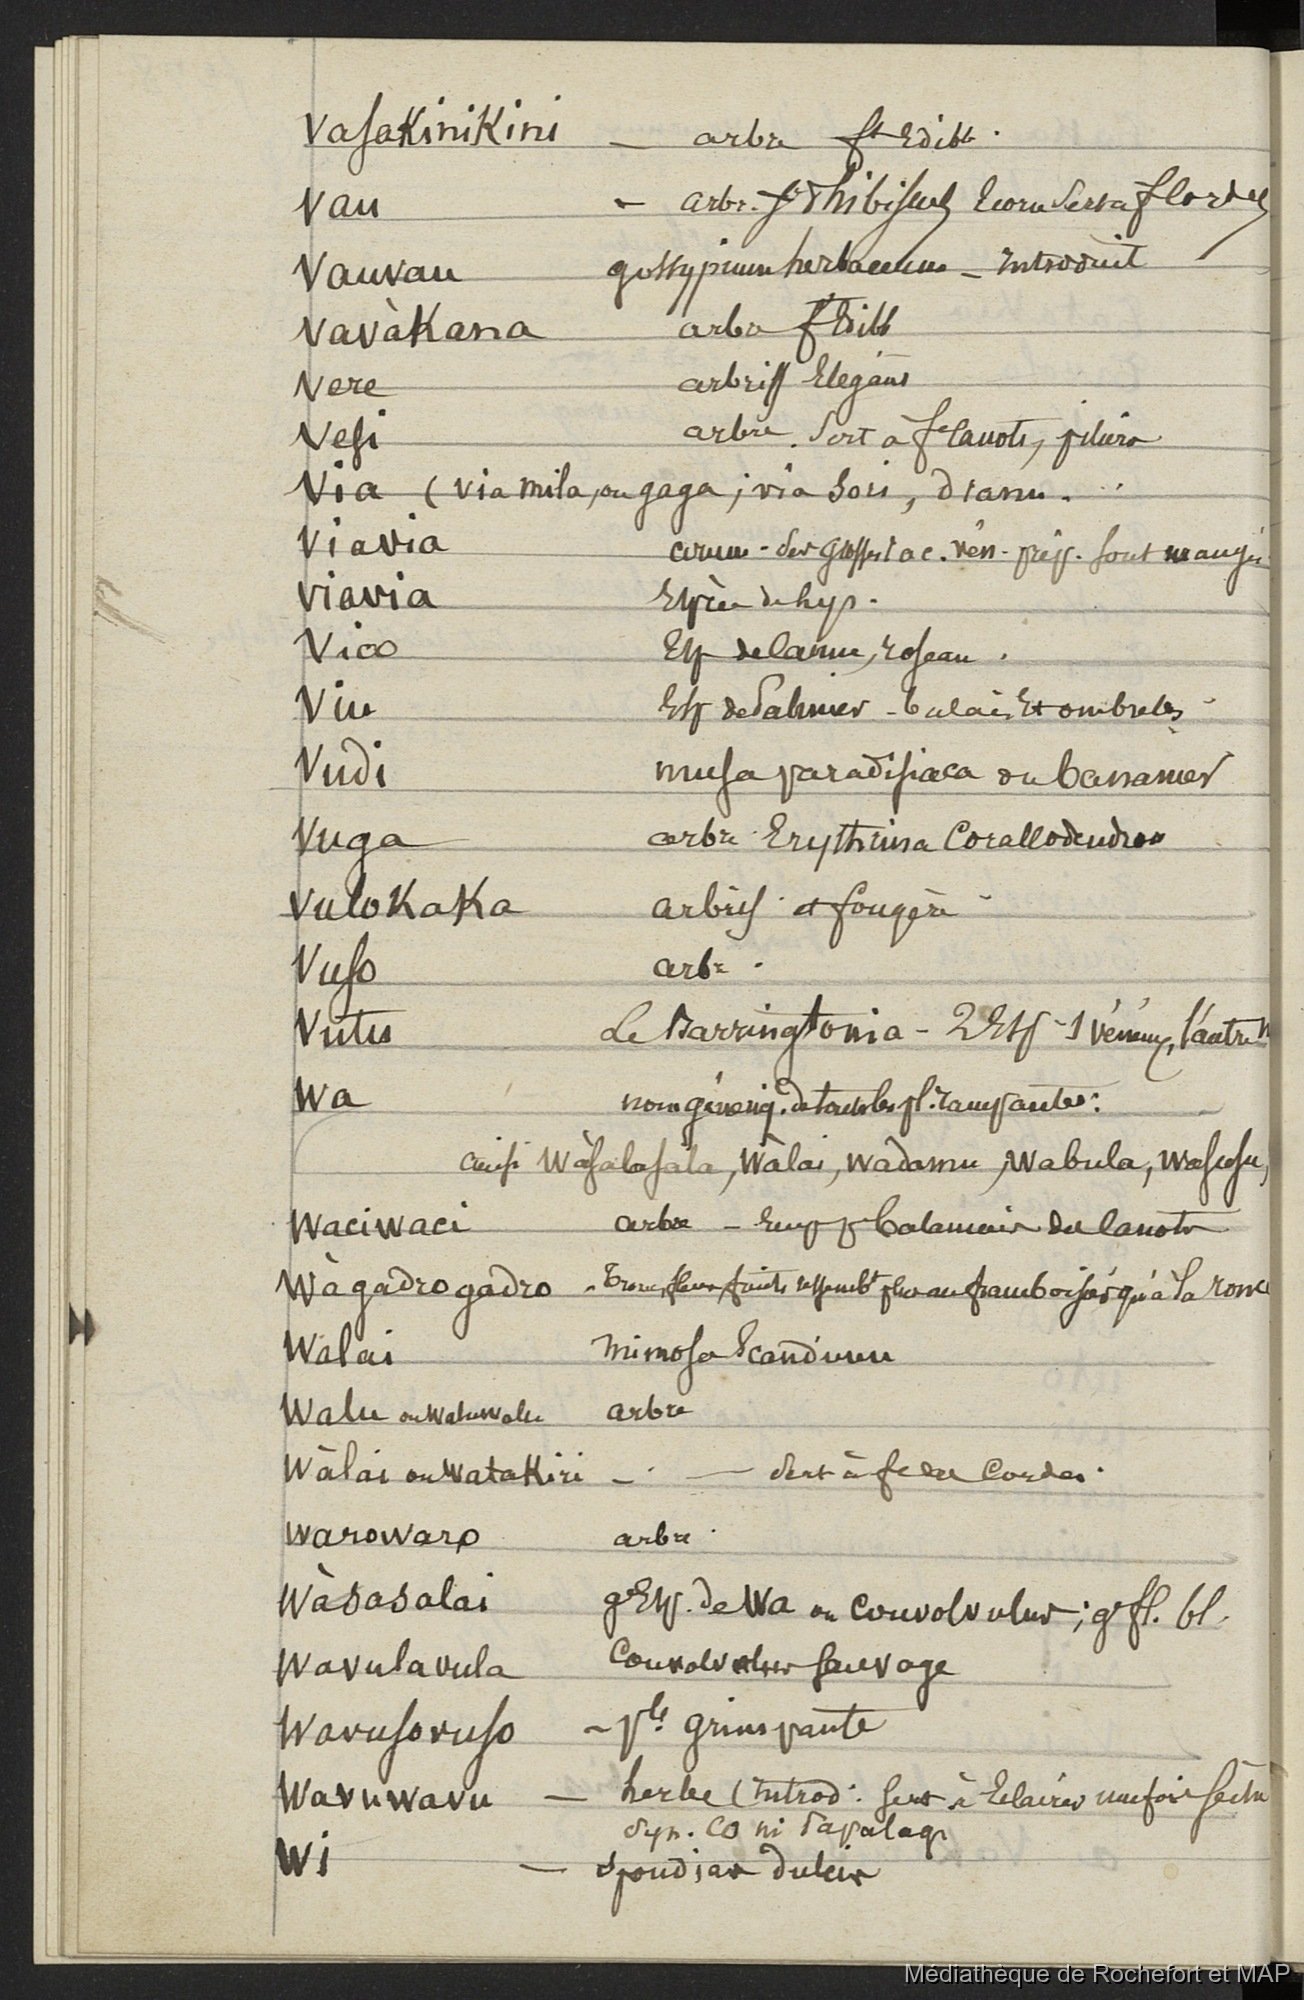 Vasakinikini — arbre ft Edible.
Vau — arbr. d'hibiscus
Vauvau gossypium herbaceum — introduit
Vavàkana arbre ft Edible
Vere arbriss Elegans
Vesi arbre. Sert à fe canots, piliers
Via (via mila, ou gaga; via sori, dranu.
Viavia arum - des grosses rac. vén - prép. sont mangé
Viavia Espèce de hyp.
Vico Esp de canne, roseau.
Viu Esp de Palmier - balais Et ombrelles
Vudi musa paradisiaca ou bananier
Vuga arbre Erythrina Corallodendron
Vulokaka arbris et fougère
Vuso arbr.
Vutu Le Barringtonia - 2 Esp - 1 vénén, l'autre n
Wa nom génériq. de toutes les pl. rampantes:
ainsi Wàsalasala, Wàlai, Wadamu, Wabula, Wasusu,
Waciwaci arbre - Emp pr balancier de canots
Wàgadrogadro - Tronc, fleur, fruits ressemblt plus au framboisier qu'à la ronce
Walai mimosa Scandens
Walu ou waluwalu arbre
Wàlai ou Watakiri — . — Sert à fe des Cordes.
Warowaro arbre.
Wàsasalai gde Esp. de Wa ou Convolvulus; gde fl. bl.
Wavulavula Convolvulus sauvage
Wavusovuso - plte grimpante
Wavuwavu — herbe (introd. Sert à Eclairer une fois séchée
Syn. Co ni Papalagi
Wi — Spondias dulcis
Médiathèque de Rochefort et MAP